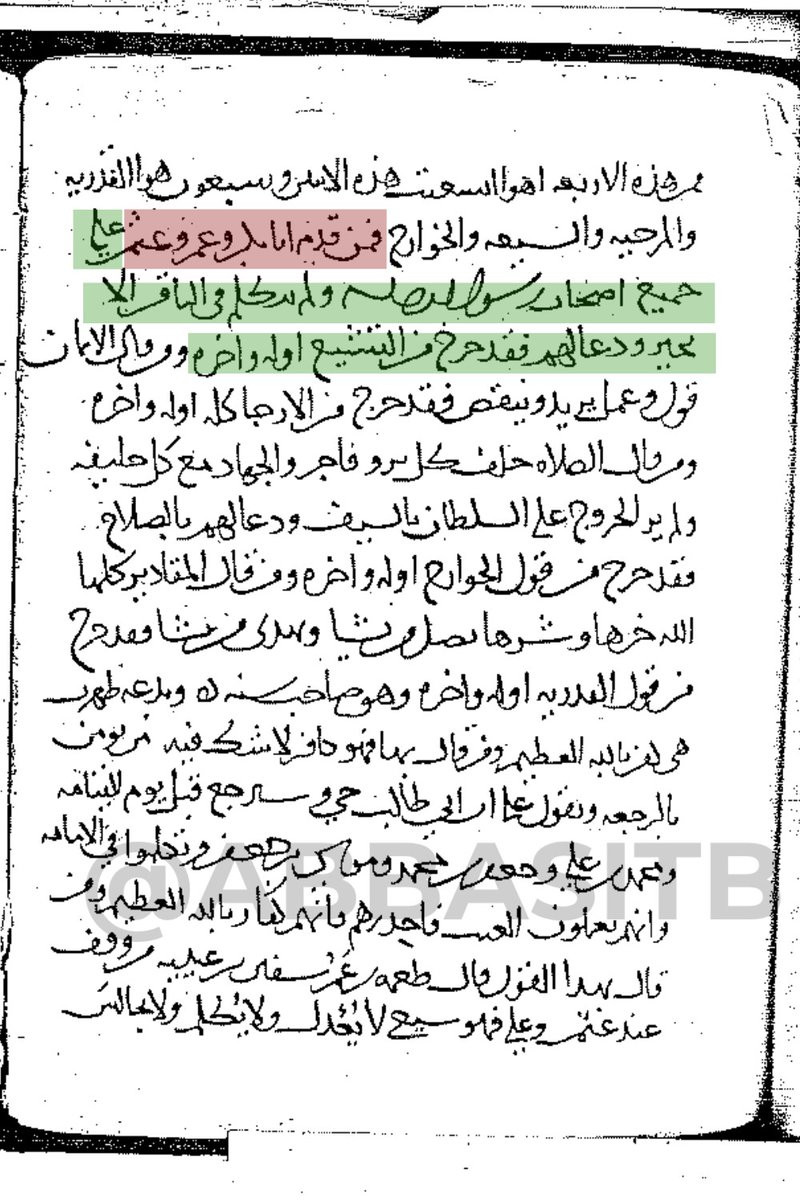 من هذه الاربعه اهوا انشعبت هذه الاثنين وسبعون هوا القدريه
والمرجيه والشيعه والخوارج فمن قدم ابا بكر وعمر وعثمن علي
جميع اصحاب رسول الله صلى الله عليه ولم يتكلم في الباقين الا
بخير ودعا لهم فقد خرج من التشيع اوله واخره ومن قال الايمان
قول وعمل يزيد وينقص فقد خرج من الارجا كله اوله واخره
ومن قال الصلاه خلف كل بر وفاجر والجهاد مع كل خليفه
ولم ير الخروج علي السلطان بالسيف ودعا لهم بالصلاح
فقد خرج من قول الخوارج اوله واخره ومن قال المقادير كلها من
الله خيرها وشرها يضل من يشا ويهدي من يشا فقد خرج
من قول القدريه اوله واخره وهو صاحب سنه وبدعه ظهرت
هي كفر بالله العظيم ومن قال بها فهو كافر لا شك فيه من يومن
بالرجعه ويقول علي ابن ابي طالب حي وسيرجع قبل يوم القيامه
ومحمد بن علي وجعفر بن محمد وموسى بن جعفر وتكلموا في الامامه
وانهم يعلمون الغيب فاحذرهم فانهم كفار بالله العظيم ومن
قال بهذا القول قال طعمه بن عمر وسفين بن عيينه من وقف
عند عثمن وعلي فهو شيعي لا يعدل ولا يكلم ولا يجالس
@ABBASITB